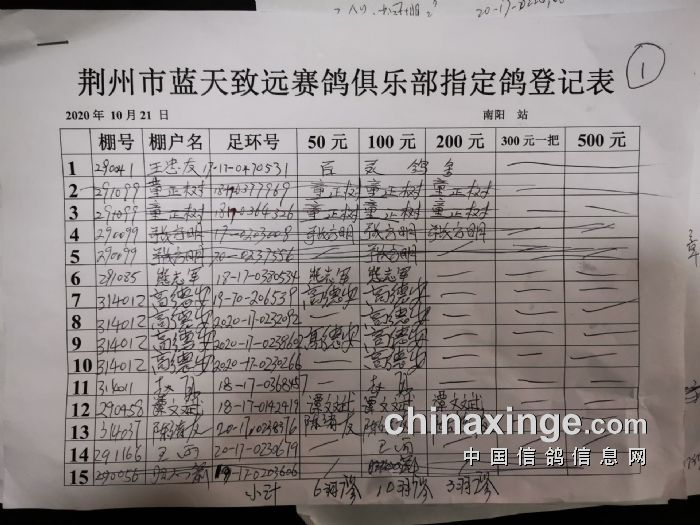 20-17-0
荆州市蓝天致远赛鸽俱乐部指定鸽登记表 1
2020 年 10 月 21 日 南阳 站
棚号 棚户名 足环号 50 元 100 元 200 元 300元一把 500 元
1 290041 王忠友 17-17-0470531 百 灵 鸽 舍 一
2 291099 董正树 0377969 董正树 董正树 董正树 一 一
3 291099 董正树 0364326 董正树 董正树 董正树 一 一
4 290099 张方明 17-0203008 张方明 张方明 张方明 一 一
5 290099 张方明 20-0237556 张方明 一 一
6 281085 熊志军 18-17-0380534 熊志军 熊志军 一 一 一
7 314012 高德安 19-70-206539 高德安 高德安 一 一 一
8 314012 高德安 2020-17-0232092 一 高德安 一 一 一
9 314012 高德安 2020-17-0238602 高德安 高德安 一 一 一
10 314012 高德安 2020-17-0230266 一 高德安 一 一 一
11 314011 18-17-0368457 一 一 一 一
12 290458 谭文斌 18-17-0142419 谭文斌 谭文斌 谭文斌 一 一
13 314037 陈 友 20-17-0238376 陈 友
14 291166 王 20-17-0230679 一 王
15 290056 19-17-0203606
小计 6羽 10羽 3羽
chinaxinge.com
中国信鸽信息网